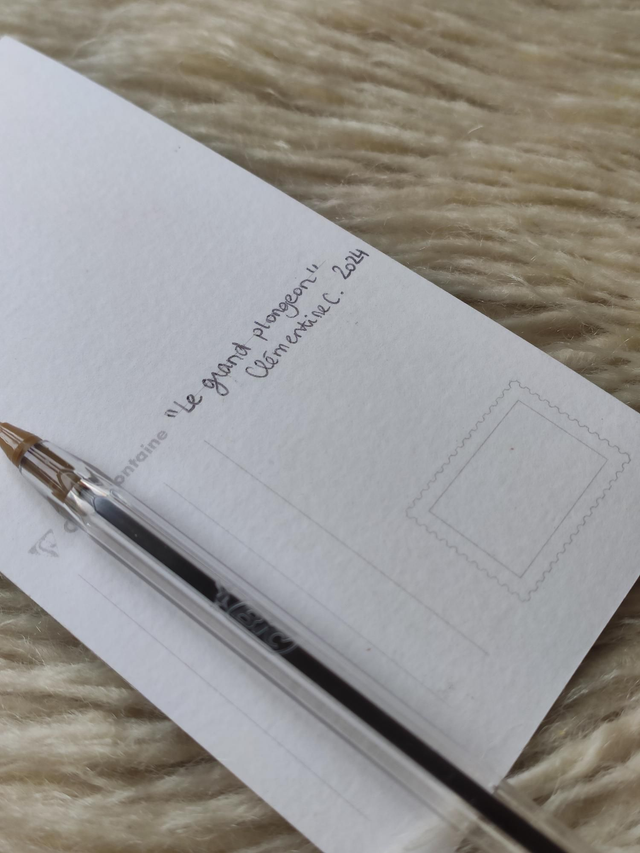 "Le grand plongeon"
Clémentine C. 2024
ontaine